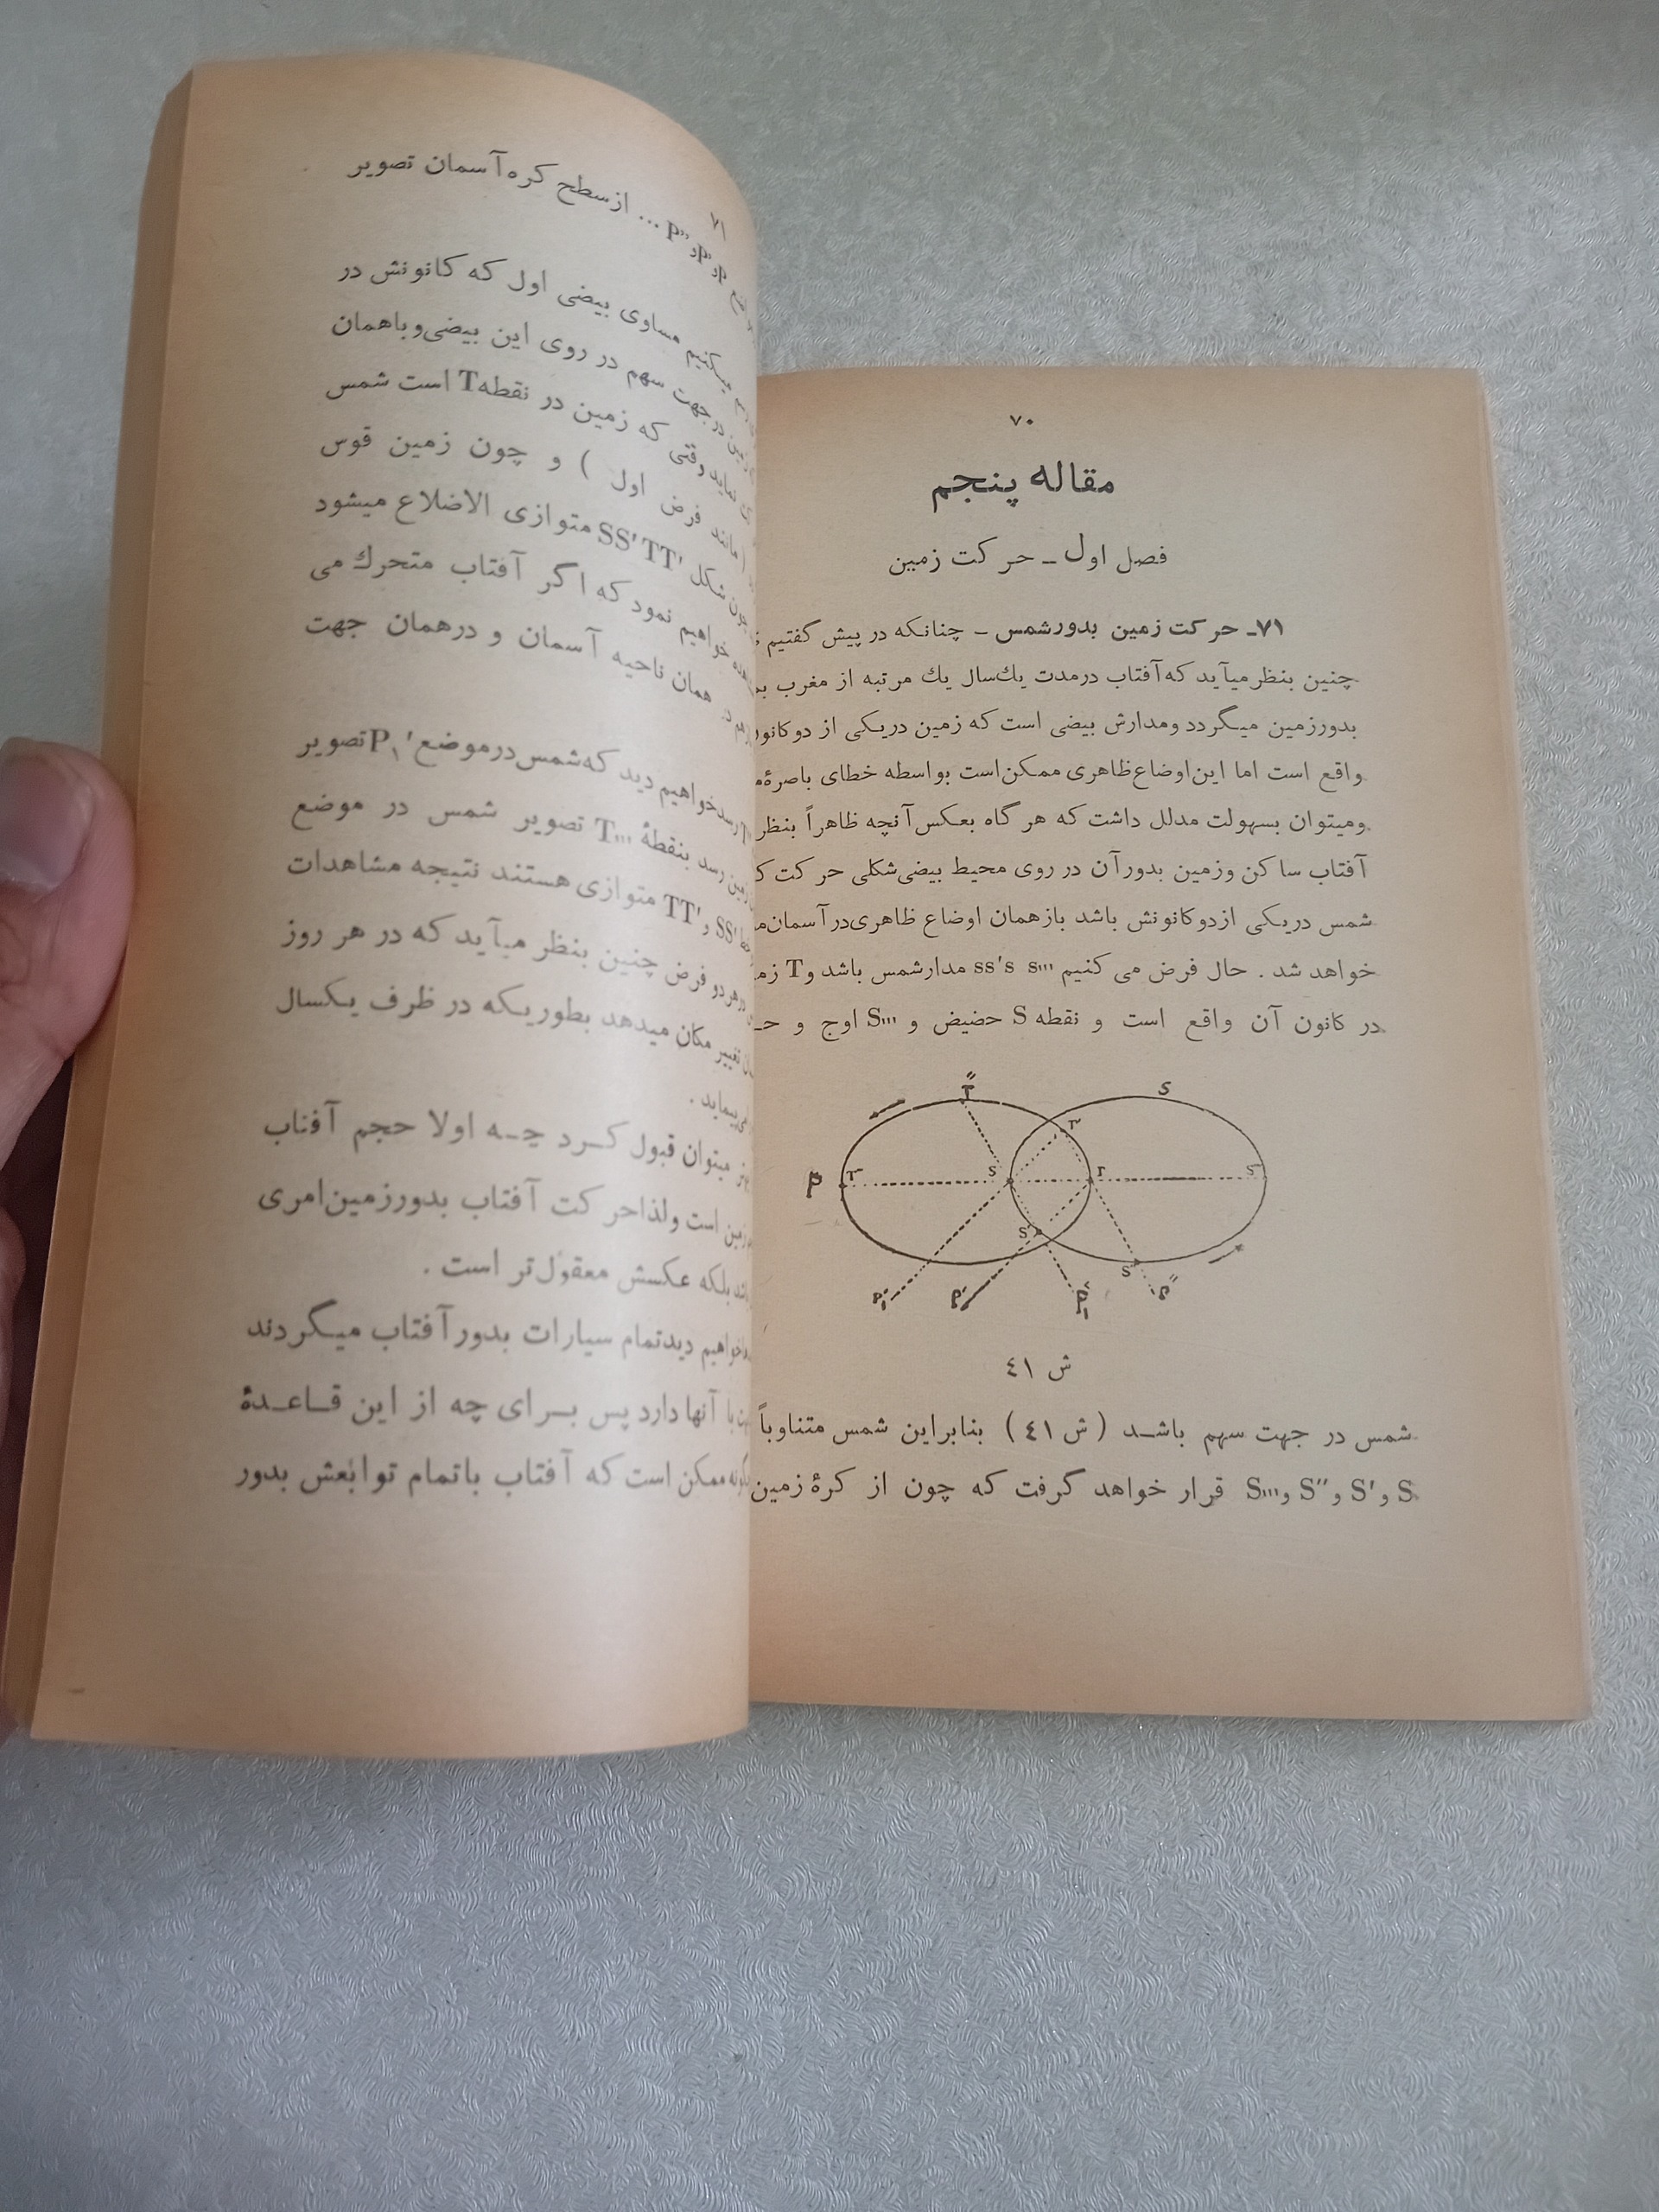 ۷۰
مقاله پنجم
فصل اول ـ حرکت زمین
۷۱ـ حرکت زمین بدورشمس ـ چنانکه در پیش گفتیم
چنین بنظرمیآید که آفتاب درمدت یك‌سال یك مرتبه از مغرب
بدورزمین میگردد ومدارش بیضی است که زمین دریکی از دوکانون
واقع است اما این اوضاع ظاهری ممکن است بواسطه خطای باصرهٔ
ومیتوان بسهولت مدلل داشت که هرگاه بعکس آنچه ظاهراً بنظر
آفتاب ساکن وزمین بدورآن در روی محیط بیضی‌شکلی حرکت
شمس دریکی ازدوکانونش باشد بازهمان اوضاع ظاهری‌درآسمان
خواهد شد . حال فرض می کنیم ss's s''' مدارشمس باشد وT
در کانون آن واقع است و نقطه S حضیض و S''' اوج و
T''
S
T'
P
T'''
S
T
S'''
S'
S''
P'₁
P'
P''₁
P''
ش ٤١
شمس در جهت سهم باشـد ( ش ٤١ ) بنابراین شمس متناوباً
S و S' و S'' و S''' قرار خواهد گرفت که چون از کرهٔ زمین
۷۱
P و P' و P'' ... ازسطح کره آسمان تصویر
میکنیم مساوی بیضی اول که کانونش در
درجهت سهم در روی این بیضی‌وباهمان
نماید وقتی که زمین در نقطه T است شمس
( مانند فرض اول ) و چون زمین قوس
چون شکل SS'TT' متوازی الاضلاع میشود
خواهیم نمود که اگر آفتاب متحرك می
همان ناحیه آسمان و درهمان جهت
رسد خواهیم دید که شمس‌درموضع P₁' تصویر
زمین رسد بنقطهٔ T''' تصویر شمس در موضع
SS' و TT' متوازی هستند نتیجه مشاهدات
درهردو فرض چنین بنظر میآید که در هر روز
تغییر مکان میدهد بطوریکه در ظرف یکسال
می‌پیماید .
میتوان قبول کـرد چـه اولا حجم آفتاب
زمین است ولذاحرکت آفتاب بدورزمین‌امری
بلکه عکسش معقول‌تر است .
خواهیم دیدتمام سیارات بدورآفتاب میگردند
با آنها دارد پس بـرای چه از این قـاعـدهٔ
ممکن است که آفتاب باتمام توابعش بدور